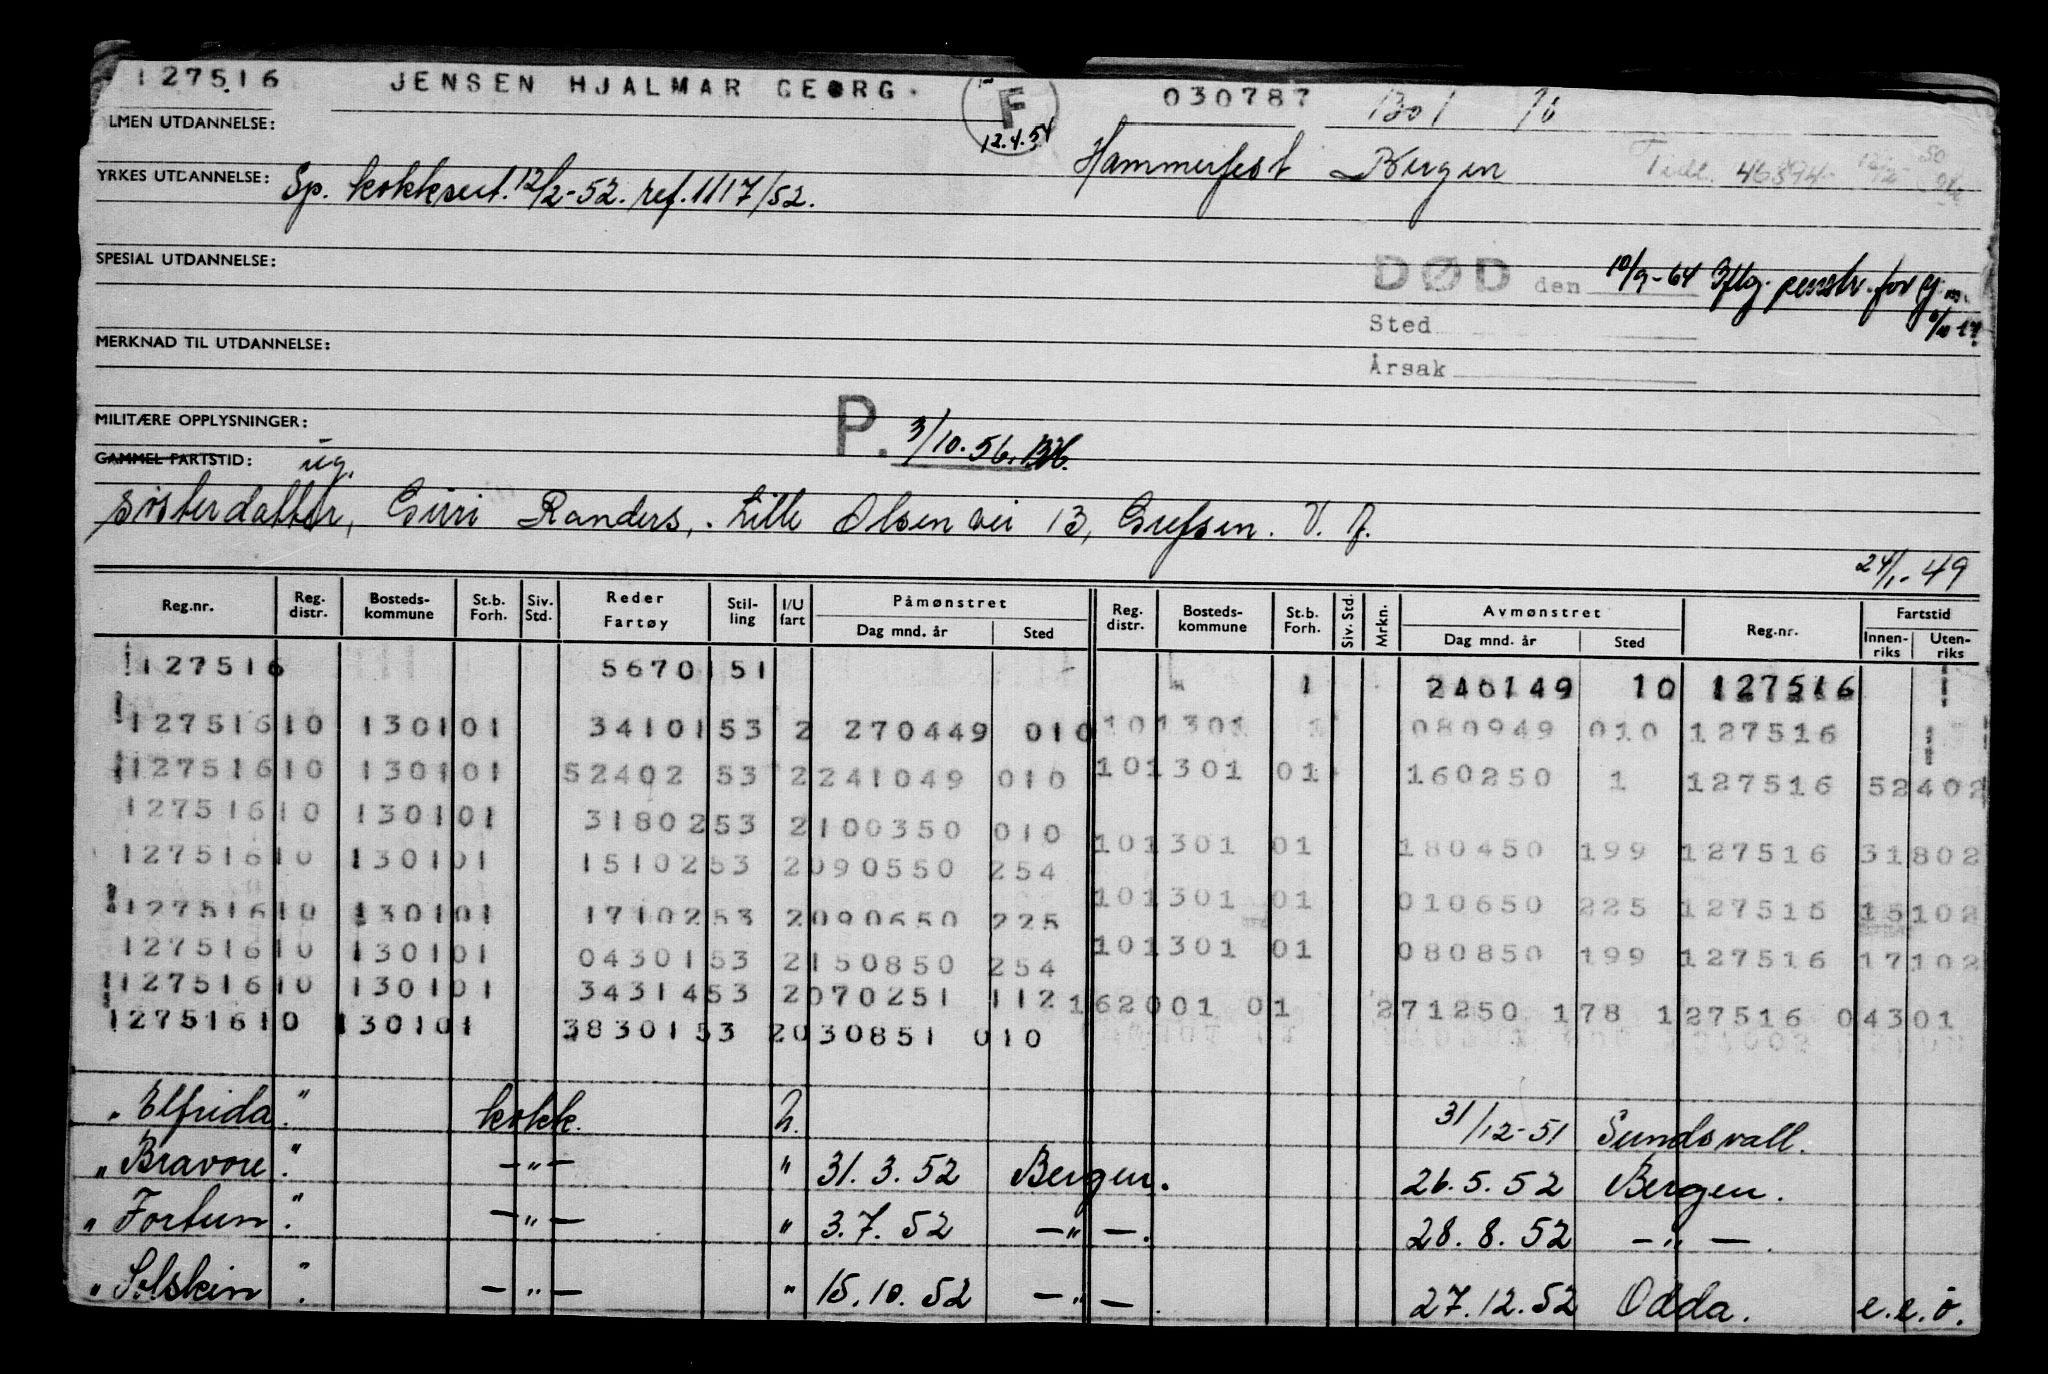 127516 JENSEN HJALMAR GEORG. F 030787 1301
12.4.54
LMEN UTDANNELSE:
Hammerfest Bergen
YRKES UTDANNELSE: Sp. kokksert. 12/2-52. ref. 1117/52.
Tidl. 46394
SPESIAL UTDANNELSE:
DØD den 10/9-64 Iflg. penstr. for
Sted
MERKNAD TIL UTDANNELSE:
Årsak
MILITÆRE OPPLYSNINGER:
P. 3/10.56.
GAMMEL FARTSTID: ug.
søsterdatter, Guri Randers, Lille Olsen vei 13, Grefsen. V. A.
24/1-49
Reg.nr. Reg. distr. Bosteds-kommune St.b. Forh. Siv. Std. Reder Fartøy Stil-ling I/U fart Påmønstret Dag mnd. år Sted Reg. distr. Bosteds-kommune St.b. Forh. Siv. Std. Mrkn. Avmønstret Dag mnd. år Sted Reg.nr. Fartstid Innen-riks Uten-riks
127516 5670151 1 240149 10 127516
12751610 130101 3410153 2 270449 010 101301 1 080949 010 127516
12751610 130101 52402 53 2241049 010 101301 01 160250 1 127516 52402
12751610 130101 3180253 2100350 010 101301 01 180450 199 127516 31802
12751610 130101 1510253 2090550 254 101301 01 010650 225 127516 15102
12751610 130101 1710253 2090650 225 101301 01 080850 199 127516 17102
12751610 130101 0430153 2150850 254 162001 01 271250 178 127516 04301
12751610 130101 3431453 2070251 112
12751610 130101 3830153 2030851 010
"Elfrida". kokk. 2. 31/12-51 Sundsvall.
"Bravore". -"- " 31.3.52 Bergen. 26.5.52 Bergen.
"Fortun". -"- " 3.7.52 -"-. 28.8.52 -"-.
"Solskin". -"- " 15.10.52 -"-. 27.12.52 Odda. e.e.ö.